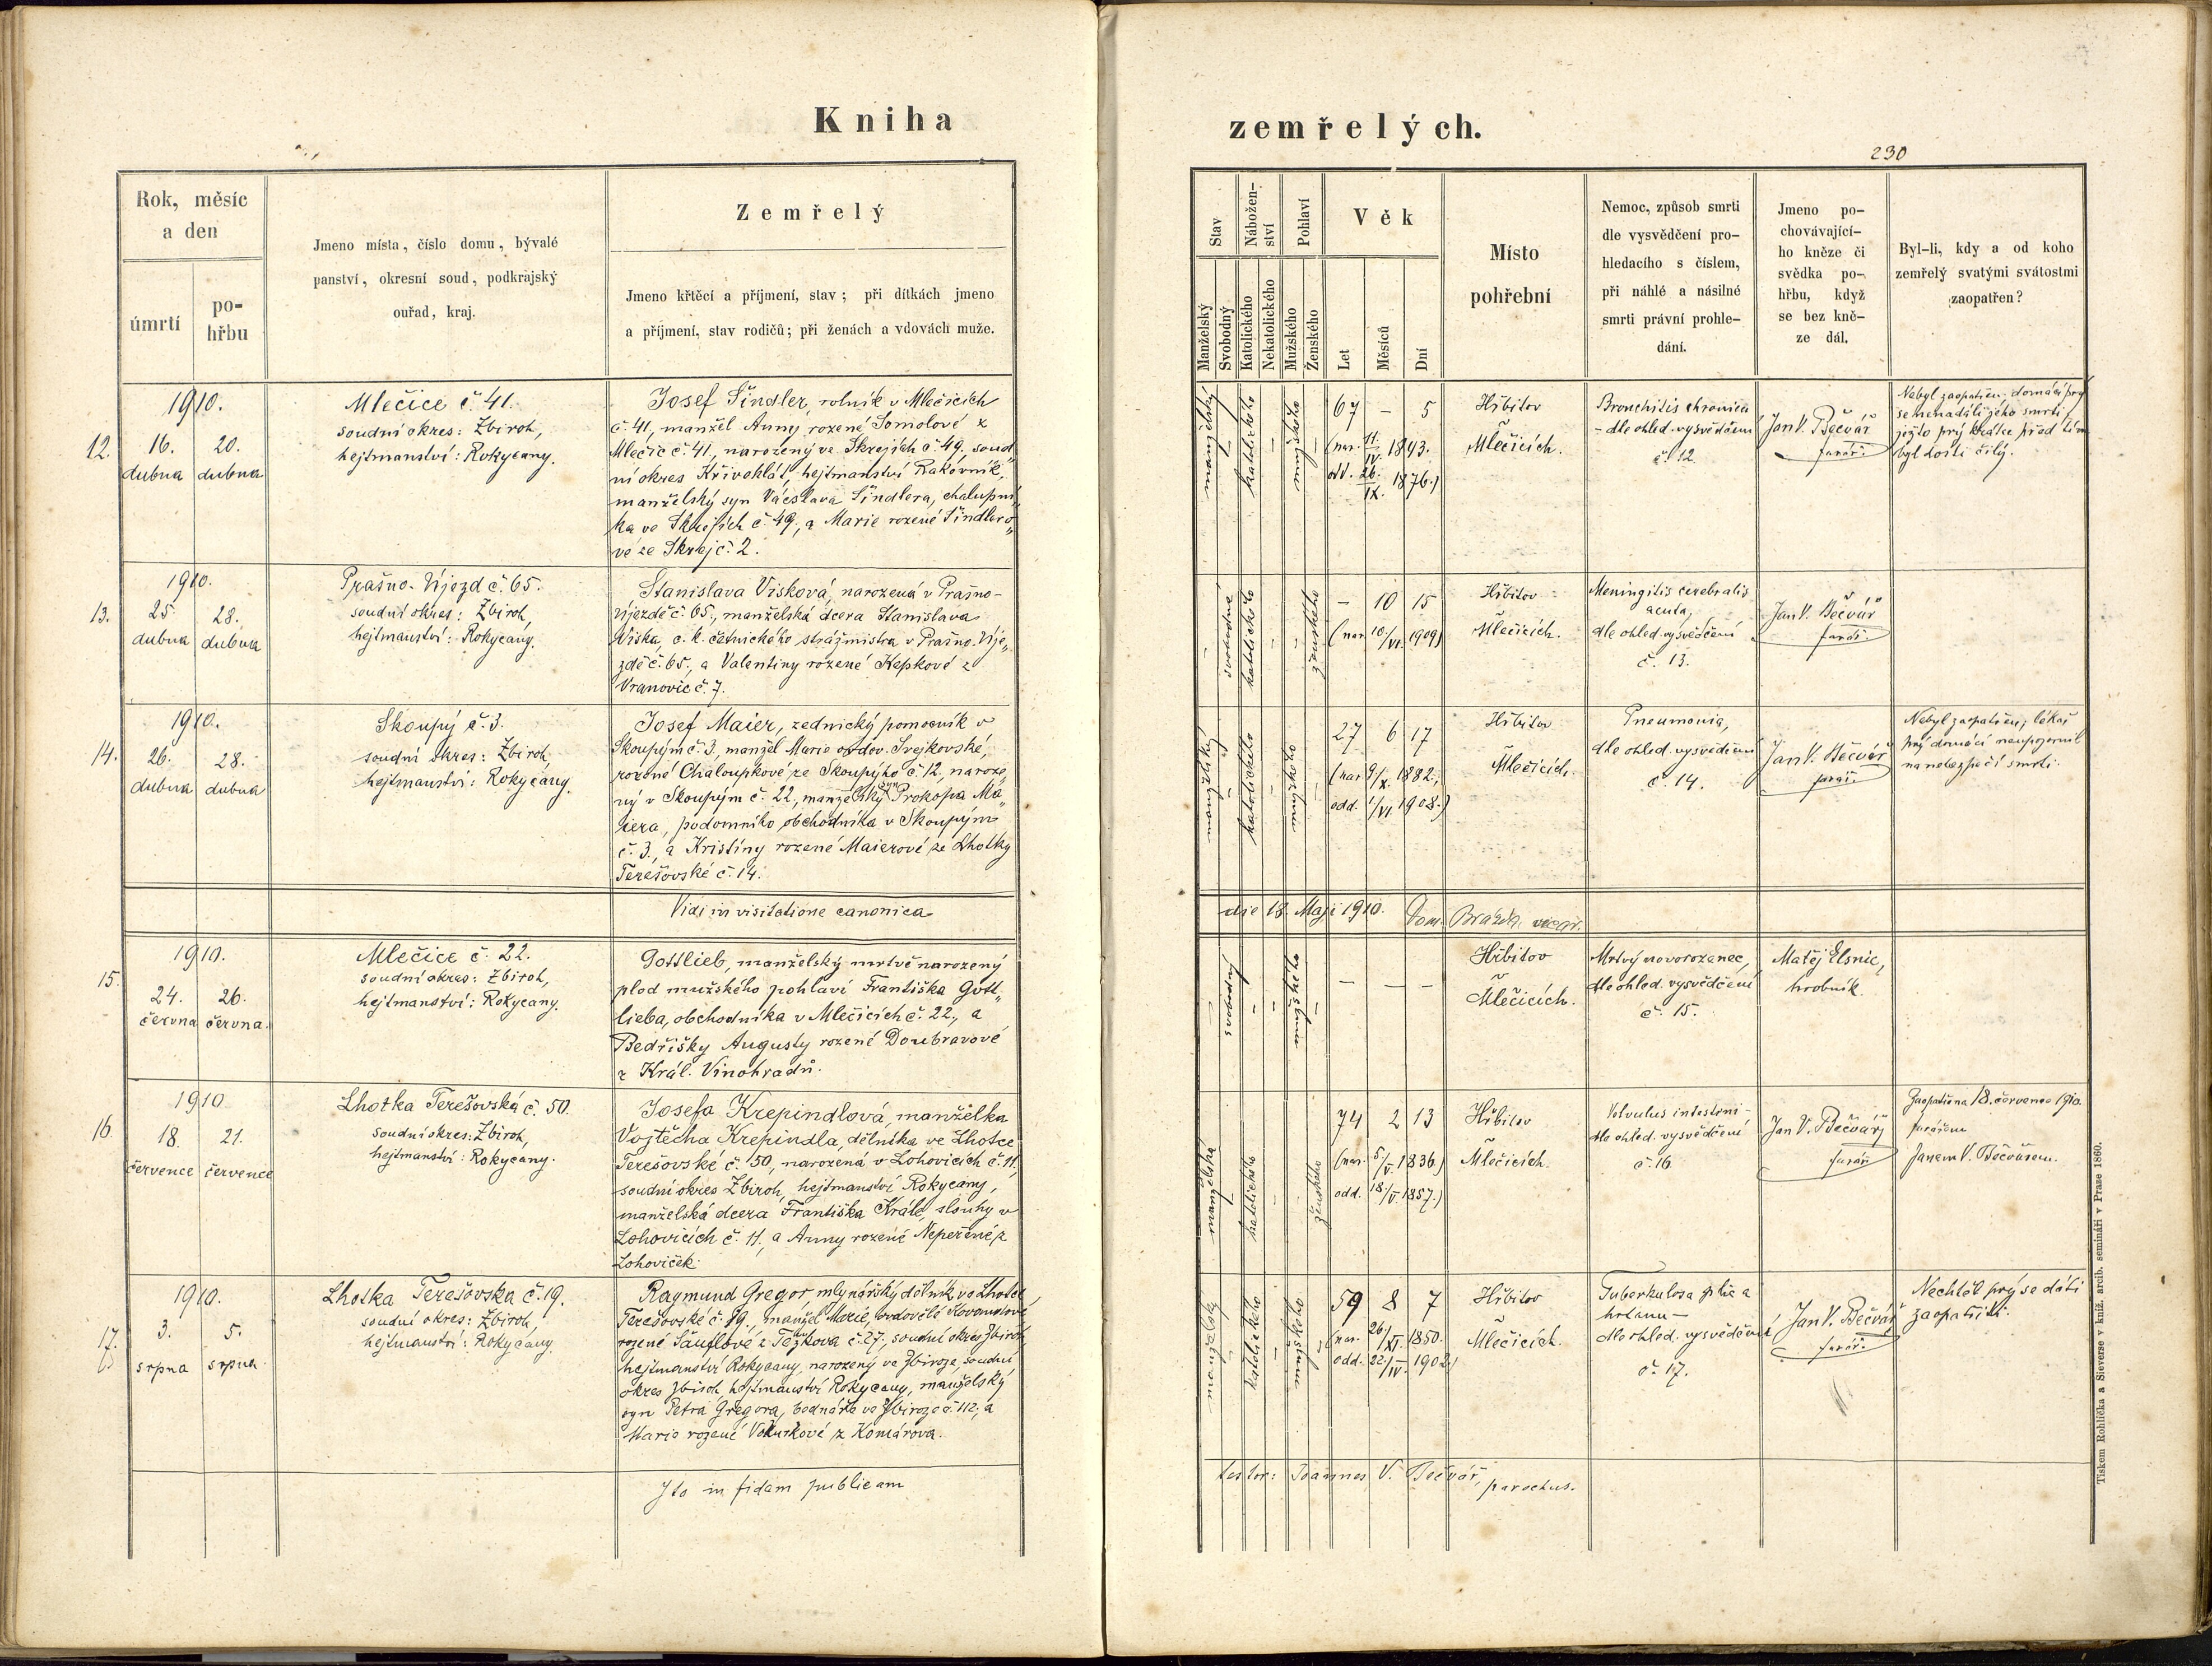 Kniha
zemřelých.
230
Rok, měsíc
a den
úmrtí
po-
hřbu
Jmeno místa, číslo domu, bývalé
panství, okresní soud, podkrajský
ouřad, kraj.
Zemřelý
Jmeno křtěcí a příjmení, stav; při dítkách jmeno
a příjmení, stav rodičů; při ženách a vdovách muže.
Stav
Manželský
Svobodný
Nábožen-
ství
Katolického
Nekatolického
Pohlaví
Mužského
Ženského
Věk
Let
Měsíců
Dní
Místo
pohřební
Nemoc, způsob smrti
dle vysvědčení pro-
hledacího s číslem,
při náhlé a násilné
smrti právní prohle-
dání.
Jmeno po-
chovávající-
ho kněze či
svědka po-
hřbu, když
se bez kně-
ze dál.
Byl-li, kdy a od koho
zemřelý svatými svátostmi
zaopatřen?
12.
1910.
16. 20.
dubna dubna
Mlečice č. 41.
soudní okres: Zbiroh,
hejtmanství: Rokycany.
Josef Šindler, rolník v Mlečicích
č. 41, manžel Anny rozené Somolové z
Mlečic č. 41, narozený ve Skrejích č. 49, soud„
ní okres Křivoklát, hejtmanství Rakovník,
manželský syn Václava Šindlera, chalupní
ka ve Skrejích č. 49, a Marie rozené Šindlero„
vé ze Skrej č. 2.
manželský
–
katolického
–
mužského
–
67 – 5
(nar. 11/IV. 1843.
odd. 26/IX. 1876.)
Hřbitov
Mlečicích.
Bronchitis chronica
– dle ohled. vysvědčení
č. 12.
Jan V. Bečvář
farář.
Nebyl zaopatřen; domácí prý
se nenadáli jeho smrti,
ježto prý krátce před tím
byl dosti čilý.
13.
1910.
25. 28.
dubna dubna
Prašno-Újezd č. 65.
soudní okres: Zbiroh,
hejtmanství: Rokycany.
Stanislava Visková, narozená v Prašno-
Újezdě č. 65, manželská dcera Stanislava
Viska, c. k. četnického strážmistra v Prašno-Úje„
zdě č. 65, a Valentiny rozené Kepkové z
Vranovic č. 7.
–
svobodné
katolického
–
–
ženského
– 10 15
(nar. 10/VI. 1909)
Hřbitov
Mlečicích.
Meningitis cerebralis
acuta,
dle ohled. vysvědčení
č. 13.
Jan V. Bečvář
farář.
14.
1910.
26. 28.
dubna dubna
Skoupý č. 3.
soudní okres: Zbiroh,
hejtmanství: Rokycany.
Josef Maier, zednický pomocník v
Skoupým č. 3, manžel Marie ovdov. Svejkovské,
rozené Chaloupkové ze Skoupýho č. 12, naroze„
ný v Skoupým č. 22, manželský syn Prokopa Ma„
iera, podomního obchodníka v Skoupým
č. 3, a Kristiny rozené Maierové ze Lhotky
Terešovské č. 14.
manželský
–
katolického
–
mužského
–
27 6 17
(nar. 9/X. 1882,
odd. 1/VI. 1908.)
Hřbitov
Mlečicích.
Pneumonia,
dle ohled. vysvědčení
č. 14.
Jan V. Bečvář
farář.
Nebyl zaopatřen; lékař
prý domácí neupozornil
na nebezpečí smrti.
Vidi in visitatione canonica
die 18. Maji 1910. Dom. vicar.
15.
1910.
24. 26.
června června.
Mlečice č. 22.
soudní okres: Zbiroh,
hejtmanství: Rokycany.
Gottlieb, manželský mrtvě narozený
plod mužského pohlaví Františka Gott„
lieba, obchodníka v Mlečicích č. 22, a
Bedřišky Augusty rozené Doubravové
z Král. Vinohradů.
–
svobodný
–
–
mužského
–
– – –
Hřbitov
Mlečicích.
Mrtvý novorozenec,
dle ohled. vysvědčení
č. 15.
Matěj Elsnic,
hrobník.
16.
1910
18. 21.
července července
Lhotka Terešovská č. 50.
soudní okres: Zbiroh,
hejtmanství: Rokycany.
Josefa Krepindlová, manželka
Vojtěcha Krepindla, dělníka ve Lhotce
Terešovské č. 50, narozená v Lohovicích č. 11,
soudní okres Zbiroh, hejtmanství Rokycany,
manželská dcera Františka Krále, sluhy v
Lohovicích č. 11, a Anny rozené Nepeřené z
Lohoviček.
manželská
–
katolického
–
–
ženského
74 2 13
(nar. 5/V. 1836.)
odd. 18/V. 1857.)
Hřbitov
Mlečicích.
Volvulus intestini –
dle ohled. vysvědčení
č. 16.
Jan V. Bečvář
farář
Zaopatřena 18. července 1910.
farářem
Janem V. Bečvářem.
17.
1910.
3. 5.
srpna srpna
Lhotka Terešovska č. 19.
soudní okres: Zbiroh,
hejtmanství: Rokycany
Raymund Gregor, mlynářský dělník ve Lhotce
Terešovské č. 19, manžel Marie, ovdovělé
rozené Šauflové z Težkova č. 27, soudní okres Zbiroh,
hejtmanství Rokycany, narozený ve Zbiroze, soudní
okres Zbiroh, hejtmanství Rokycany, manželský
syn Petra Gregora, bednáře ve Zbiroze č. 112, a
Marie rozené z Komárova.
manželský
–
katolického
–
mužského
–
59 8 7
(nar. 26/XI. 1850.
odd. 22/IV. 1902.)
Hřbitov
Mlečicích.
Tuberkulosa plic a
hrtanu –
dle ohled. vysvědčení
č. 17.
Jan V. Bečvář
farář.
Nechtěl prý se dáti
zaopatřiti.
Ita in fidam publicam
testor: Joannes V. Bečvář, parochus.
Tiskem Rohlíčka a Sieverse v kníž. arcib. semináři v Praze 1860.